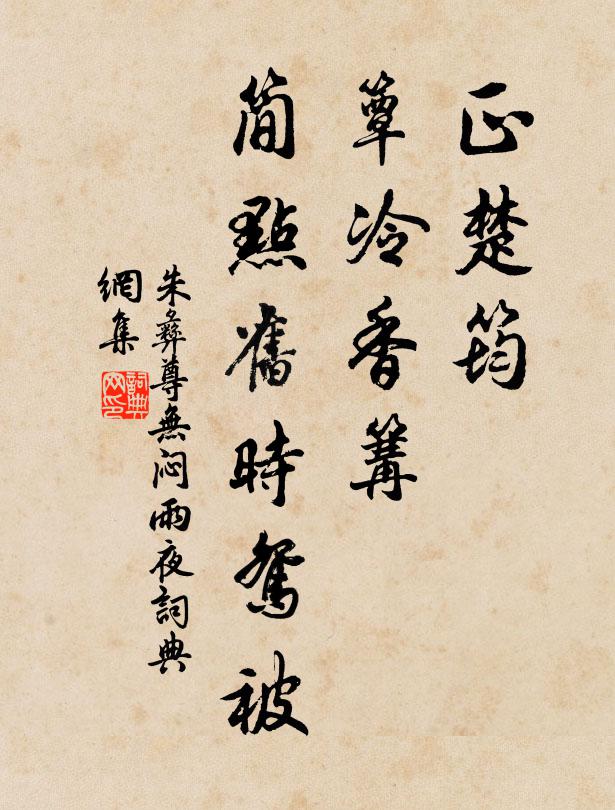 正楚筠
簟冷香篝
簡點舊時鴛被
朱彝尊無闷雨夜詞典
網集
詞典
网印